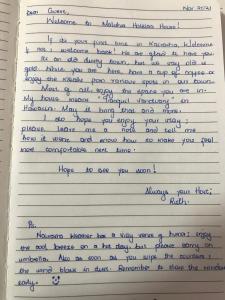 Dear Guest, Nov 2021
Welcome to Maluhia Holiday Home!
If its your first time in Kaiwaiha, Welcome
If not, welcome back! We are glad to have you
Its an old dusty town, but we say old is
gold. While you are here, have a cup of coffee or
enjoy the from various spots in our town.
Most of all, enjoy the space you are in.
My house means "Tranquil Sanctuary" in
Hawaiin. May it bring that and more.
I do hope you enjoy your stay;
please leave me a note and tell me
how it went and know how to make you feel
more comfortable next time.
Hope to see you soon!
Always your Host,
Ruth.
Ps.
weather has a silly sense of humor; enjoy
the cool breeze on a hot day, but please carry an
umbrella. Also as soon as you wipe the counters,
the wind blows in dust. Remember to close the windows
early.